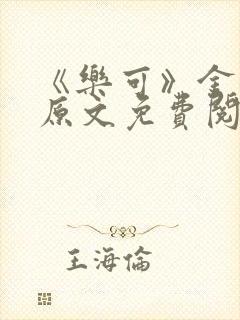 《樂可》全
原文免費閱
王海倫